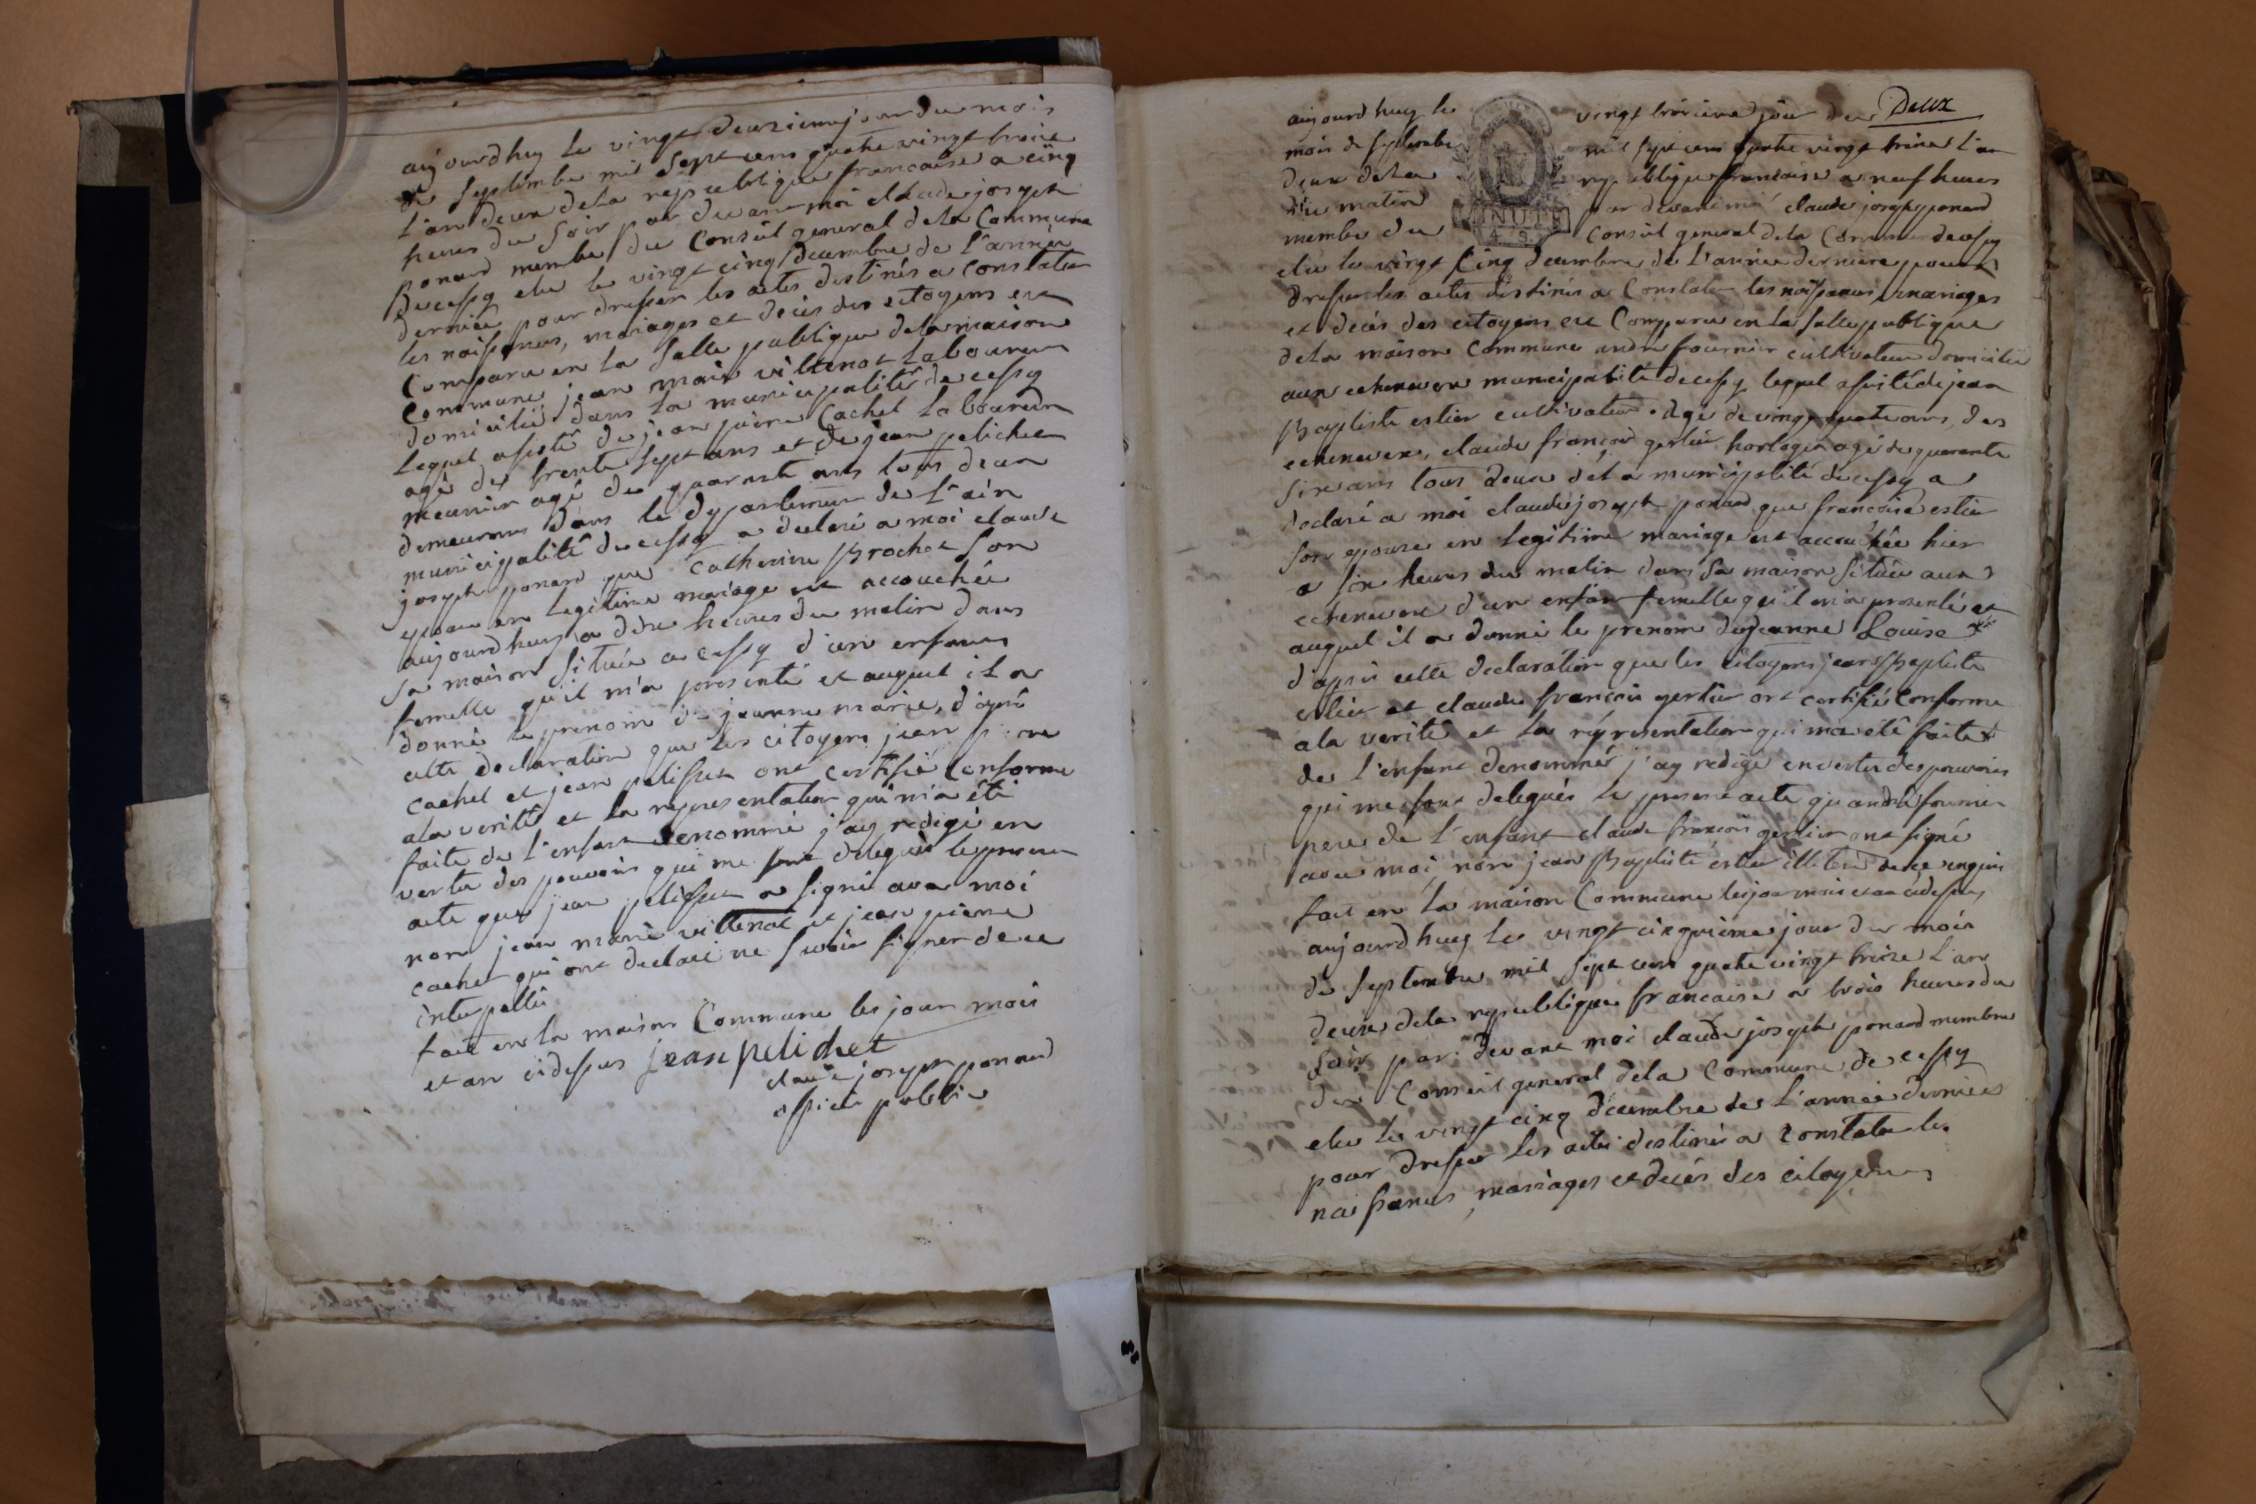 aujourdhuy le vingt deuxieme jour du mois
de septembre mil sept cens quatre vingt treize
l'an deux de la republique francaise a cinq
heures du soir par devant moi claude joseph
ponard membre du Conseil general dela Commune
de cessy elu le vingt cinq decembre de l'année
derniere pour dresser les actes destinés a constater
les naissances, mariages et decès des citoyens est
Comparu en la salle publique dela maison
Commune jean marie villenot laboureur
domicilié dans la municipalité de cessy
lequel assisté de jean pierre Cachet laboureur
agé de trente sept ans et de jean pelichet
meunier agé de quarante ans tous deux
demeurans dans le departement de l'ain
municipalité de cessy a declaré a moi claude
joseph ponard que Catherine Brochot son
epouse en legitime mariage est accouchée
aujourdhuy a dix heures du matin dans
sa maison située a cessy d'un enfant
femelle qu'il m'a presenté et auquel il a
donné le prenom de jeanne marie, d'aprè
cette declaration que les citoyens jean pierre
cachet et jean pelisset ont certifié Conforme
ala verité et la representation qui m'a été
faite de l'enfant denommé j'ay redigé en
vertu des pouvoirs qui me sont delegués le present
acte que jean pelisset a signé avec moi
non jean marie villenot et jean pierre
cachet qui ont declaré ne savoir signer de ce
interpellés
fait en la maison Commune les jour mois
et an cidessus jean pelichet
claude joseph ponard
officier public
Deux
aujourdhuy le vingt troisieme jour du
mois de septembre mil sept cens quatre vingt treize l'an
deux dela republique francaise a neuf heures
du matin par devant moi claude joseph ponard
membre du Conseil general dela Commune de cessy
elu le vingt Cinq decembre de l'année derniere pour
dresser les actes destinés a Constater les naissances mariages
et decés des citoyens est Comparu en la salle publique
dela maison Commune andré fournier cultivateur domicilié
aux echenevex municipalité de cessy lequel assisté de jean
Baptiste estier cultivateur agé de vingt quatre ans, des
echenevex, claude françois gerlier horloger agé de quarante
six ans tous deux dela municipalité de cessy a
declaré a moi claude joseph ponard que francoise estier
son epouse en legitime mariage est accouchée hier
a six heures du matin dans sa maison située aux
echenevex d'un enfant femelle qu'il m'a presenté et
auquel il a donné le prenom de jeanne Louise
d'aprés cette declaration que les citoyens jean Baptiste
estier et claude françois gerlier ont certifié Conforme
ala verité et la representation qui m'a eté faite
de l'enfant denommé j'ay redigé en vertu des pouvoirs
qui me sont delegués le present acte qu'andré fournier
pere de l'enfant claude françois gerlier ont signé
avec moi, non jean Baptiste estier illiteré de ce enquis
fait en la maison Commune les jour mois et an cidessus,
aujourdhuy le vingt cinquième jour du mois
de septembre mil sept cens quatre vingt treize l'an
deux dela republique francaise a trois heures du
soir par devant moi claude joseph ponard membre
du Conseil general dela Commune de cessy
elu le vingt cinq decembre de l'année derniere
pour dresser les actes destinés a constater les
naissances, mariages et decés des citoyens